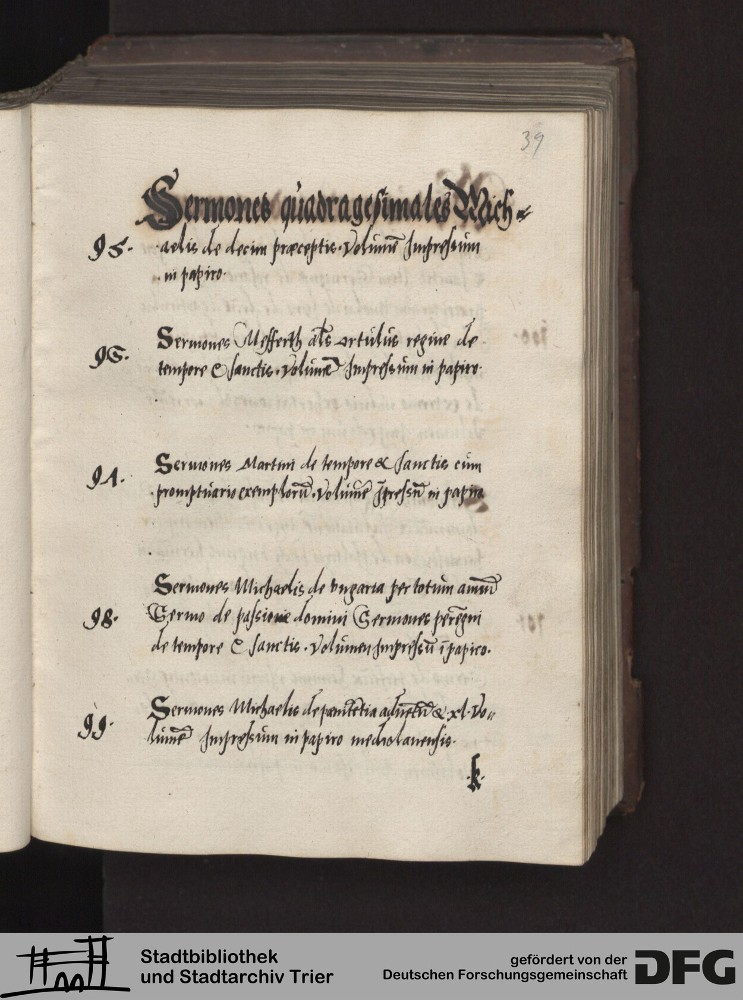 39
Sermones quadragesimales Mich=
95. aelis de decem præceptis. Volumē Impressum
in papiro.
96. Sermones Meffreth als ortulus regine de
tempore & sanctis. Volumē Impressum in papiro.
97. Sermones Martini de tempore & sanctis cum
promptuario exemplorū. Volumē Īpressū in papiro
Sermones Michaelis de vngaria per totum annū
98. Sermo de passione domini Sermones peregrini
de tempore & sanctis. Volumen Impressū ī papiro.
99. Sermones Michaelis de penitētia aduētū & xl. Vo=
lumē Impressum in papiro mediolanensis.
k.
Stadtbibliothek
und Stadtarchiv Trier
gefördert von der
Deutschen Forschungsgemeinschaft
DFG